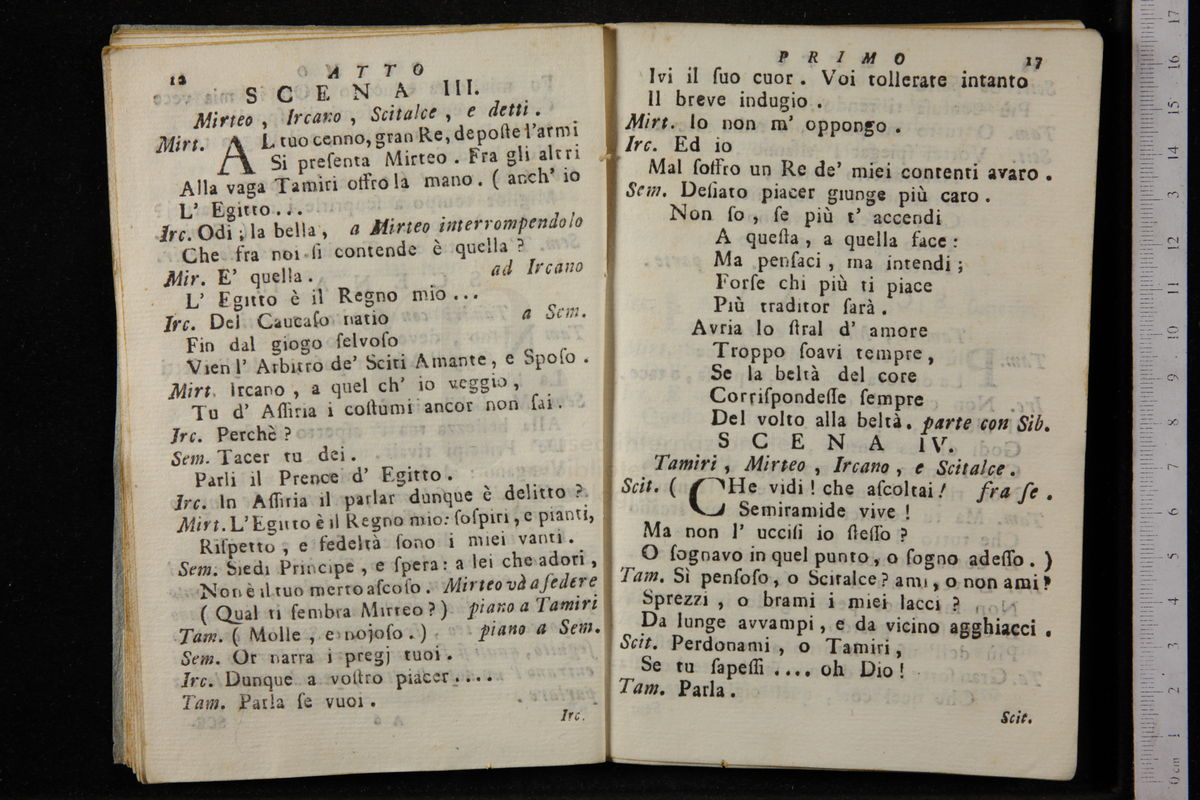 12 ATTO
SCENA III.
Mirteo, Ircano, Scitalce, e detti.
Mirt. AL tuo cenno, gran Re, depoſte l'armi
Si preſenta Mirteo. Fra gli altri
Alla vaga Tamiri offro la mano. ( anch' io
L' Egitto...
Irc. Odi; la bella, a Mirteo interrompendolo
Che fra noi ſi contende è quella?
Mir. E' quella. ad Ircano
L' Egitto è il Regno mio...
Irc. Del Caucaſo natio a Sem.
Fin dal giogo ſelvoſo
Vien l' Arbitro de' Sciti Amante, e Spoſo.
Mirt. Ircano, a quel ch' io veggio,
Tu d' Aſſiria i coſtumi ancor non ſai.
Irc. Perchè?
Sem. Tacer tu dei.
Parli il Prence d' Egitto.
Irc. In Aſſiria il parlar dunque è delitto?
Mirt. L'Egitto è il Regno mio: ſoſpiri, e pianti,
Riſpetto, e fedeltà ſono i miei vanti.
Sem. Siedi Principe, e ſpera: a lei che adori,
Non è il tuo merto aſcoſo. Mirteo và a ſedere
( Qual ti ſembra Mirteo? ) piano a Tamiri
Tam. ( Molle, e nojoſo. ) piano a Sem.
Sem. Or narra i pregj tuoi.
Irc. Dunque a voſtro piacer....
Tam. Parla ſe vuoi.
Irc.
PRIMO 17
Ivi il ſuo cuor. Voi tollerate intanto
Il breve indugio.
Mirt. Io non m' oppongo.
Irc. Ed io
Mal ſoffro un Re de' miei contenti avaro.
Sem. Deſiato piacer giunge più caro.
Non ſo, ſe più t' accendi
A queſta, a quella face:
Ma penſaci, ma intendi;
Forſe chi più ti piace
Più traditor ſarà.
Avria lo ſtral d' amore
Troppo ſoavi tempre,
Se la beltà del core
Corriſpondeſſe ſempre
Del volto alla beltà. parte con Sib.
SCENA IV.
Tamiri, Mirteo, Ircano, e Scitalce.
Scit. ( CHe vidi! che aſcoltai! fra ſe.
Semiramide vive!
Ma non l' ucciſi io ſteſſo?
O ſognavo in quel punto, o ſogno adeſſo. )
Tam. Sì penſoſo, o Scitalce? ami, o non ami?
Sprezzi, o brami i miei lacci?
Da lunge avvampi, e da vicino agghiacci.
Scit. Perdonami, o Tamiri,
Se tu ſapeſſi .... oh Dio!
Tam. Parla.
Scit.